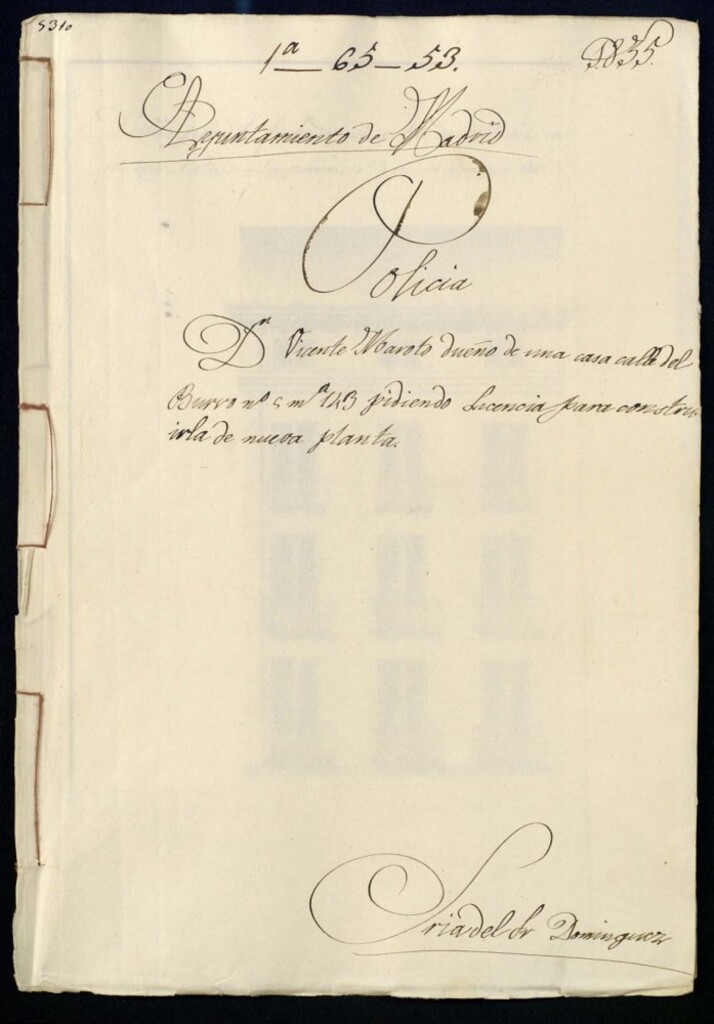 5310
1ª — 65 — 53.
1835.
Ayuntamiento de Madrid
Policia
Dn Vicente Maroto dueño de una casa calle del
Burro nº 5 mª 143 pidiendo Licencia para constru
irla de nueva planta.
Sria del Sr Dominguez